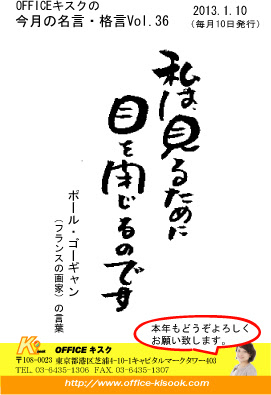 OFFICEキスクの
今月の名言・格言Vol.36
2013.1.10
（毎月10日発行）
私は、見るために
目を閉じるのです
ポール・ゴーギャン
（フランスの画家）の言葉
本年もどうぞよろしく
お願い致します。
OFFICE キスク
〒108-0023 東京都港区芝浦4-10-1キャピタルマークタワー403
TEL. 03-6435-1306 FAX. 03-6435-1307
http://www.office-kisook.com